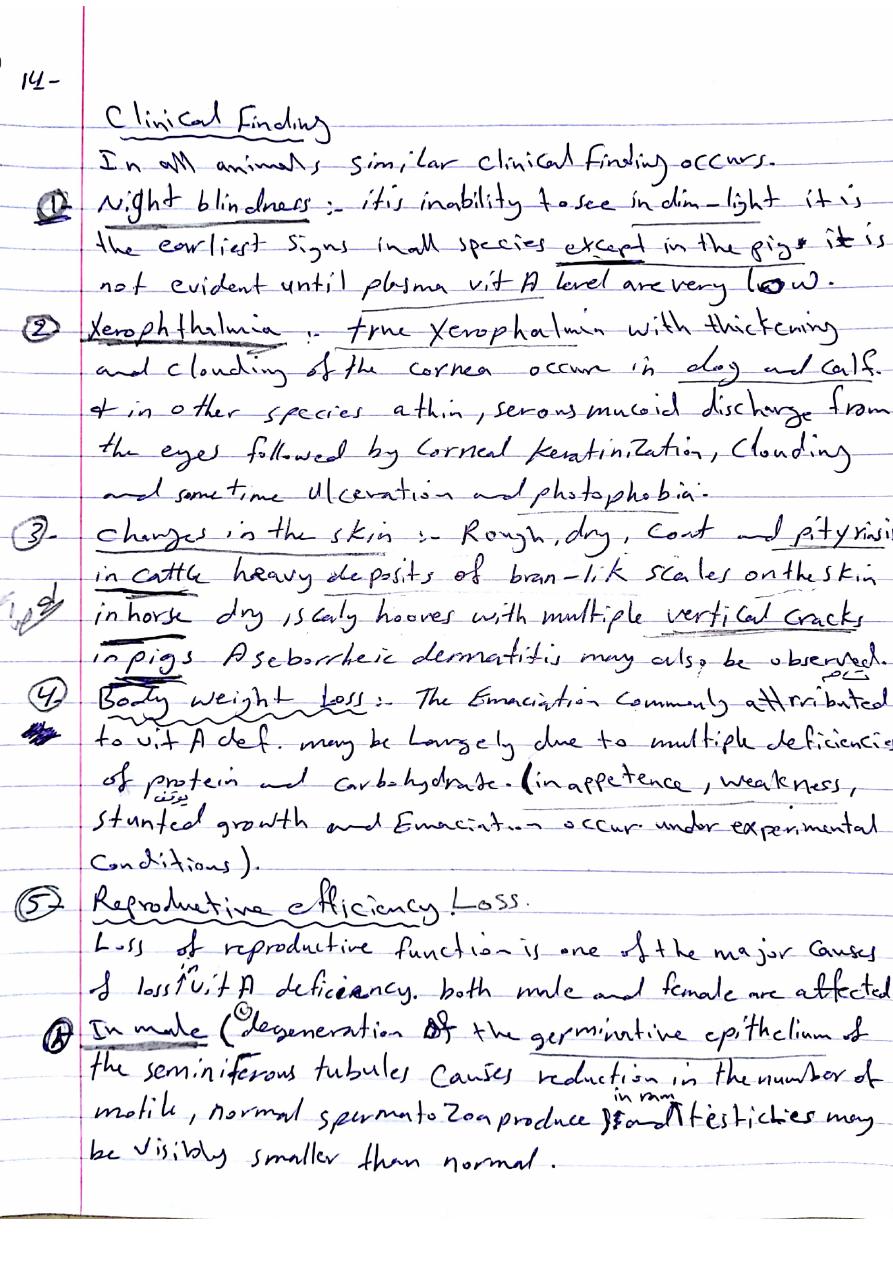 14-
Clinical Finding
In all animals similar clinical finding occurs.
① Night blindness :- itis inability to see in dim-light it is
the earliest signs in all species except in the pig it is
not evident until plasma vit A level are very low.
② Xerophthalmia :- true Xerophalmin with thickening
and clouding of the cornea occur in dog and calf.
& in other species a thin, serous mucoid discharge from
the eyes followed by corneal keratinization, clouding
and some time ulceration and photophobia.
③- changes in the skin :- Rough, dry, coat and pityriasis
in cattle heavy deposits of bran-lik scales on the skin
in horse dry, scaly hooves with multiple vertical cracks
in pigs A seborrheic dermatitis may also be observed.
④ Body weight Loss :- The Emaciation commonly attributed
to vit A def. may be Largely due to multiple deficiencies
of protein and carbohydrate. (inappetence, weakness,
stunted growth and Emaciation occur under experimental
conditions).
⑤- Reproductive efficiency Loss.
Loss of reproductive function is one of the major causes
of loss in vit A deficiency. both male and female are affected
A In male (degeneration of the germinative epithelium of
the seminiferous tubules causes reduction in the number of
motile, normal spermatozoa produce) and in ram testicles may
be visibly smaller than normal.